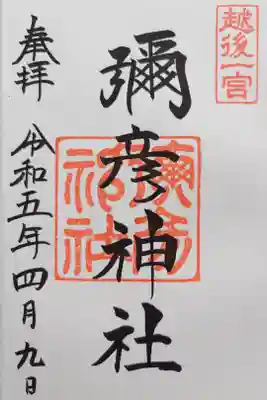 越後一宮
彌彦神社
奉拝
令和五年四月九日